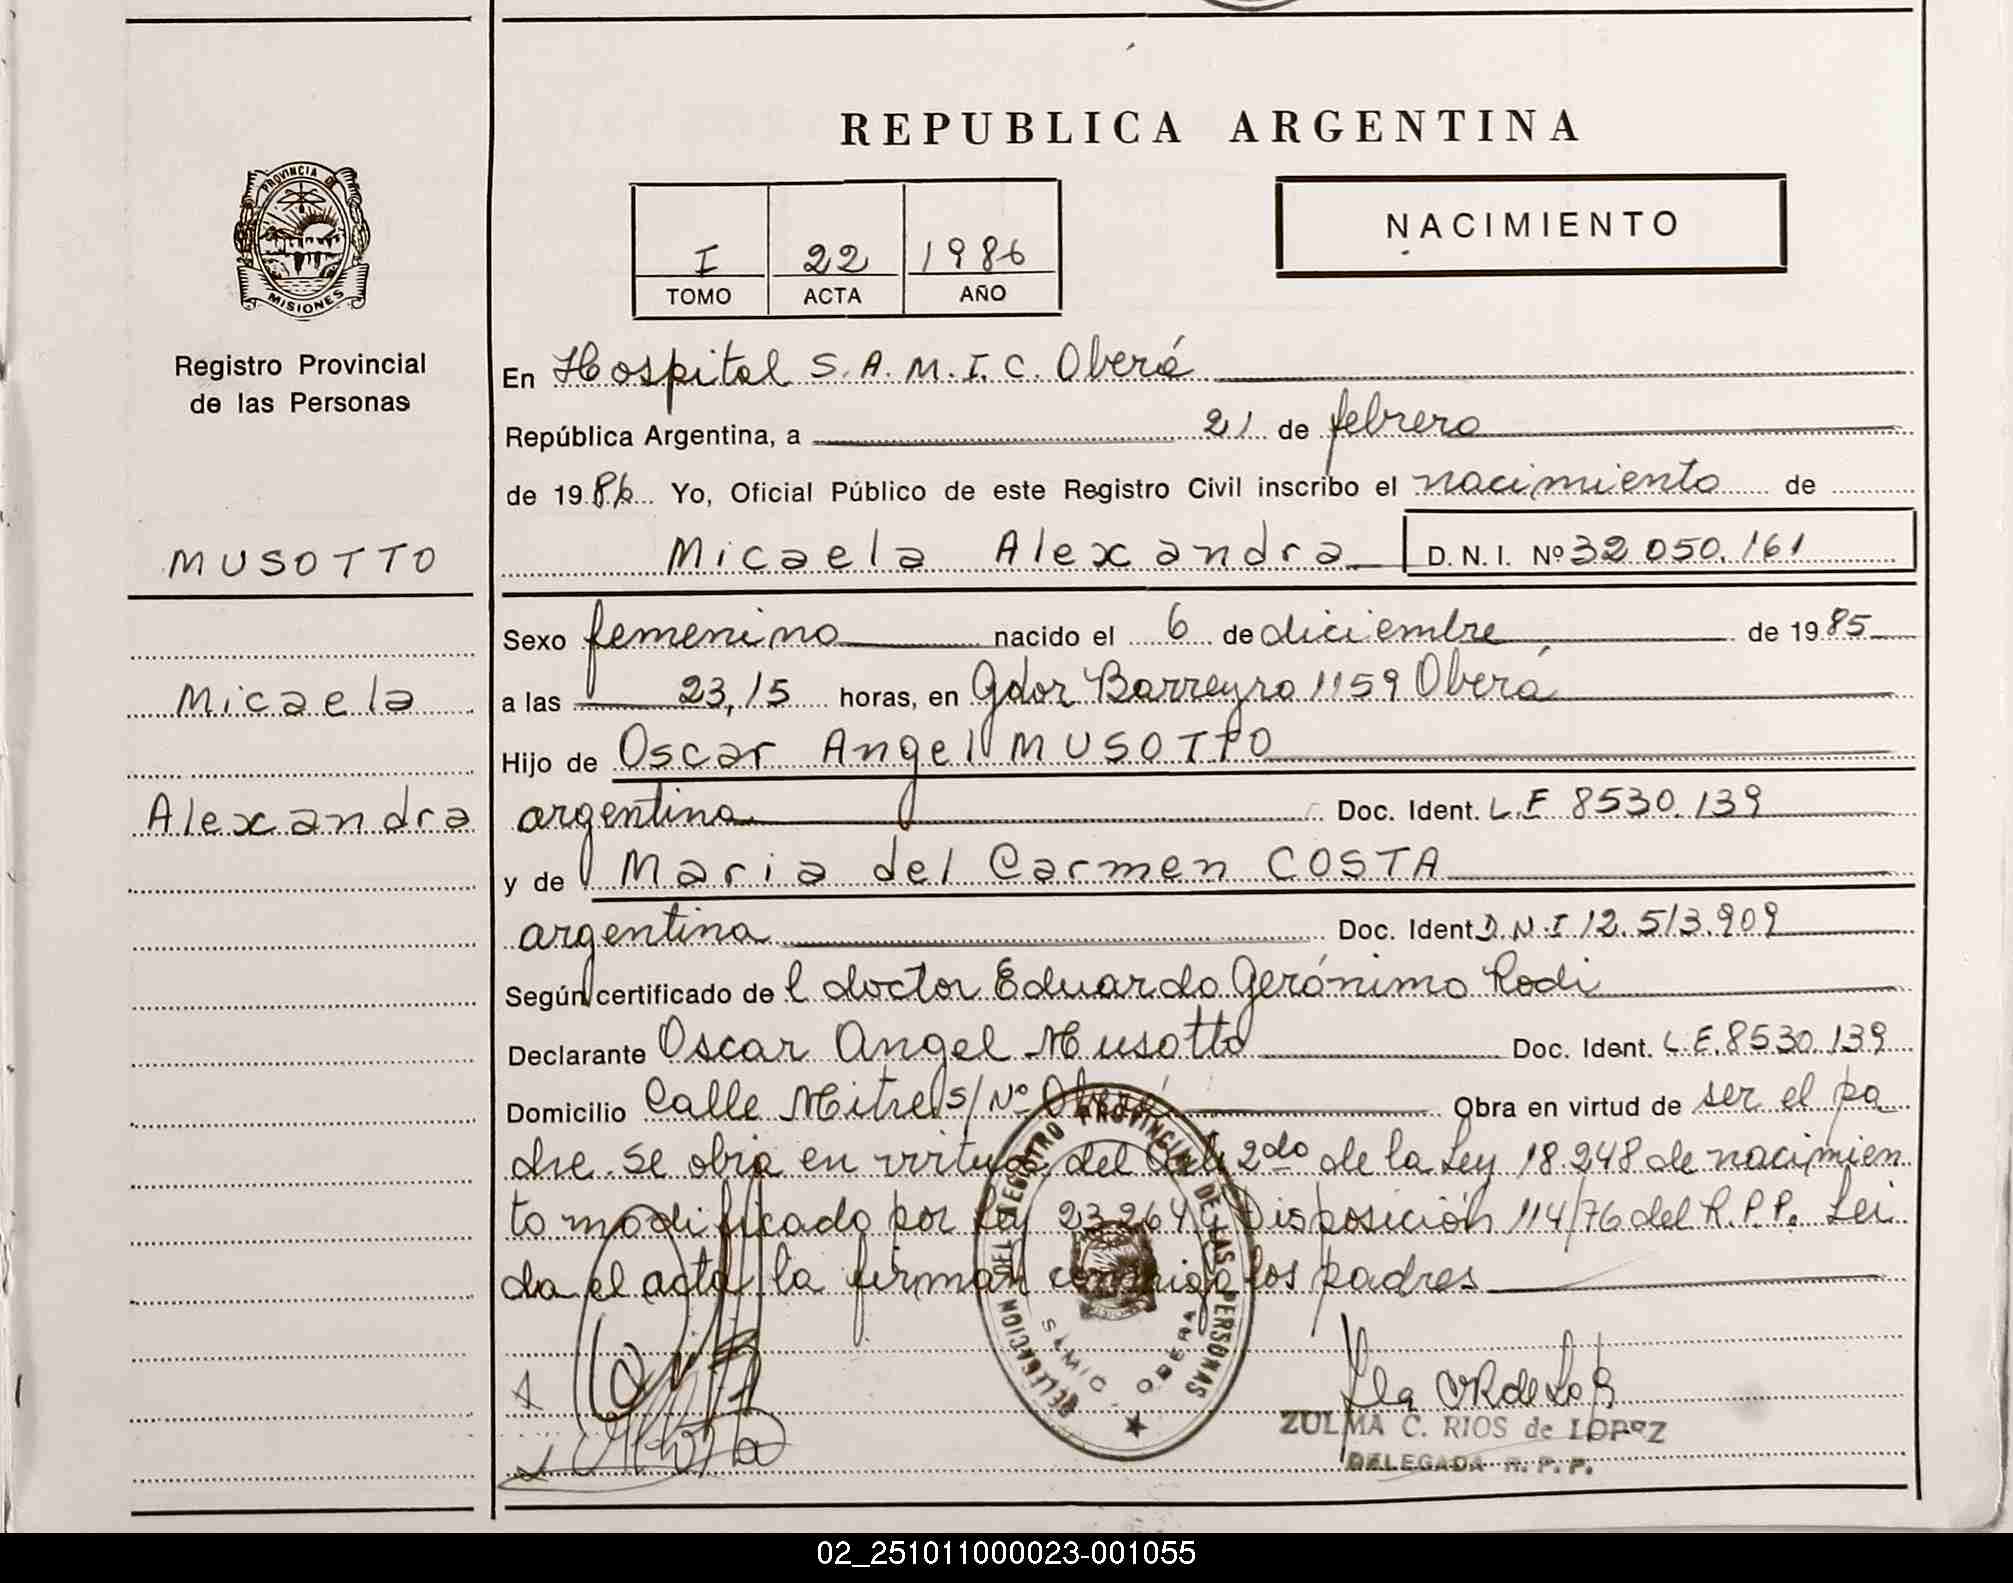 REPUBLICA ARGENTINA
PROVINCIA DE
MISIONES
Registro Provincial
de las Personas
I 22 1986
TOMO ACTA AÑO
NACIMIENTO
En Hospital S.A.M.I.C. Oberá
República Argentina, a 21 de febrero
de 1986 Yo, Oficial Público de este Registro Civil inscribo el nacimiento de
MUSOTTO
Micaela Alexandra D.N.I. Nº 32.050.161
Sexo femenino nacido el 6 de diciembre de 1985
Micaela
a las 23,15 horas, en Gdor Barreyro 1159 Oberá
Hijo de Oscar Angel MUSOTTO
Alexandra
argentina Doc. Ident. L.E 8530.139
y de Maria del Carmen COSTA
argentina Doc. Ident D.N.I 12.513.909
Según certificado de l doctor Eduardo Gerónimo Rodi
Declarante Oscar Angel Musotto Doc. Ident. L.E. 8530.139
Domicilio Calle Mitre S/Nº Oberá Obra en virtud de ser el pa
dre. Se obra en virtud del 2do de la Ley 18.248 de nacimien
to modificado por Ley 23264 y Disposición 114/76 del R.P.P. Lei
da el acta la firman conmigo los padres
DELEGACION DEL REGISTRO PROVINCIAL DE LAS PERSONAS
SAMIC OBERA
ZULMA C. RIOS de LOPEZ
DELEGADA R.P.P.
02_251011000023-001055